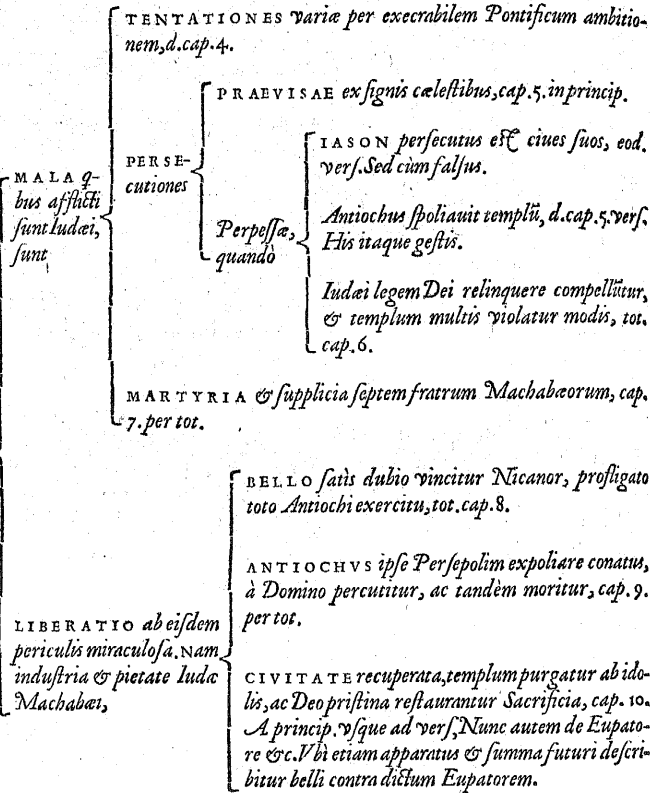 TENTATIONES variæ per execrabilem Pontificum ambitio-
nem, d. cap. 4.
MALA q-
bus afflicti
sunt Iudæi,
sunt
PERSE-
cutiones
PRAEVISAE ex signis cælestibus, cap. 5. in princip.
Perpessæ,
quandò
IASON persecutus est ciues suos, eod.
vers. Sed cùm falsus.
Antiochus spoliauit templũ, d. cap. 5. vers.
His itaque gestis.
Iudæi legem Dei relinquere compellũtur,
& templum multis violatur modis, tot.
cap. 6.
MARTYRIA & supplicia septem fratrum Machabæorum, cap.
7. per tot.
LIBERATIO ab eisdem
periculis miraculosa. NAM
industria & pietate Iudæ
Machabæi,
BELLO satìs dubio vincitur Nicanor, profligato
toto Antiochi exercitu, tot. cap. 8.
ANTIOCHVS ipse Persepolim expoliare conatus,
à Domino percutitur, ac tandèm moritur, cap. 9.
per tot.
CIVITATE recuperata, templum purgatur ab ido-
lis, ac Deo pristina restaurantur Sacrificia, cap. 10.
A princip. vsque ad vers, Nunc autem de Eupato-
re &c. Vbì etiam apparatus & summa futuri descri-
bitur belli contra dictum Eupatorem.